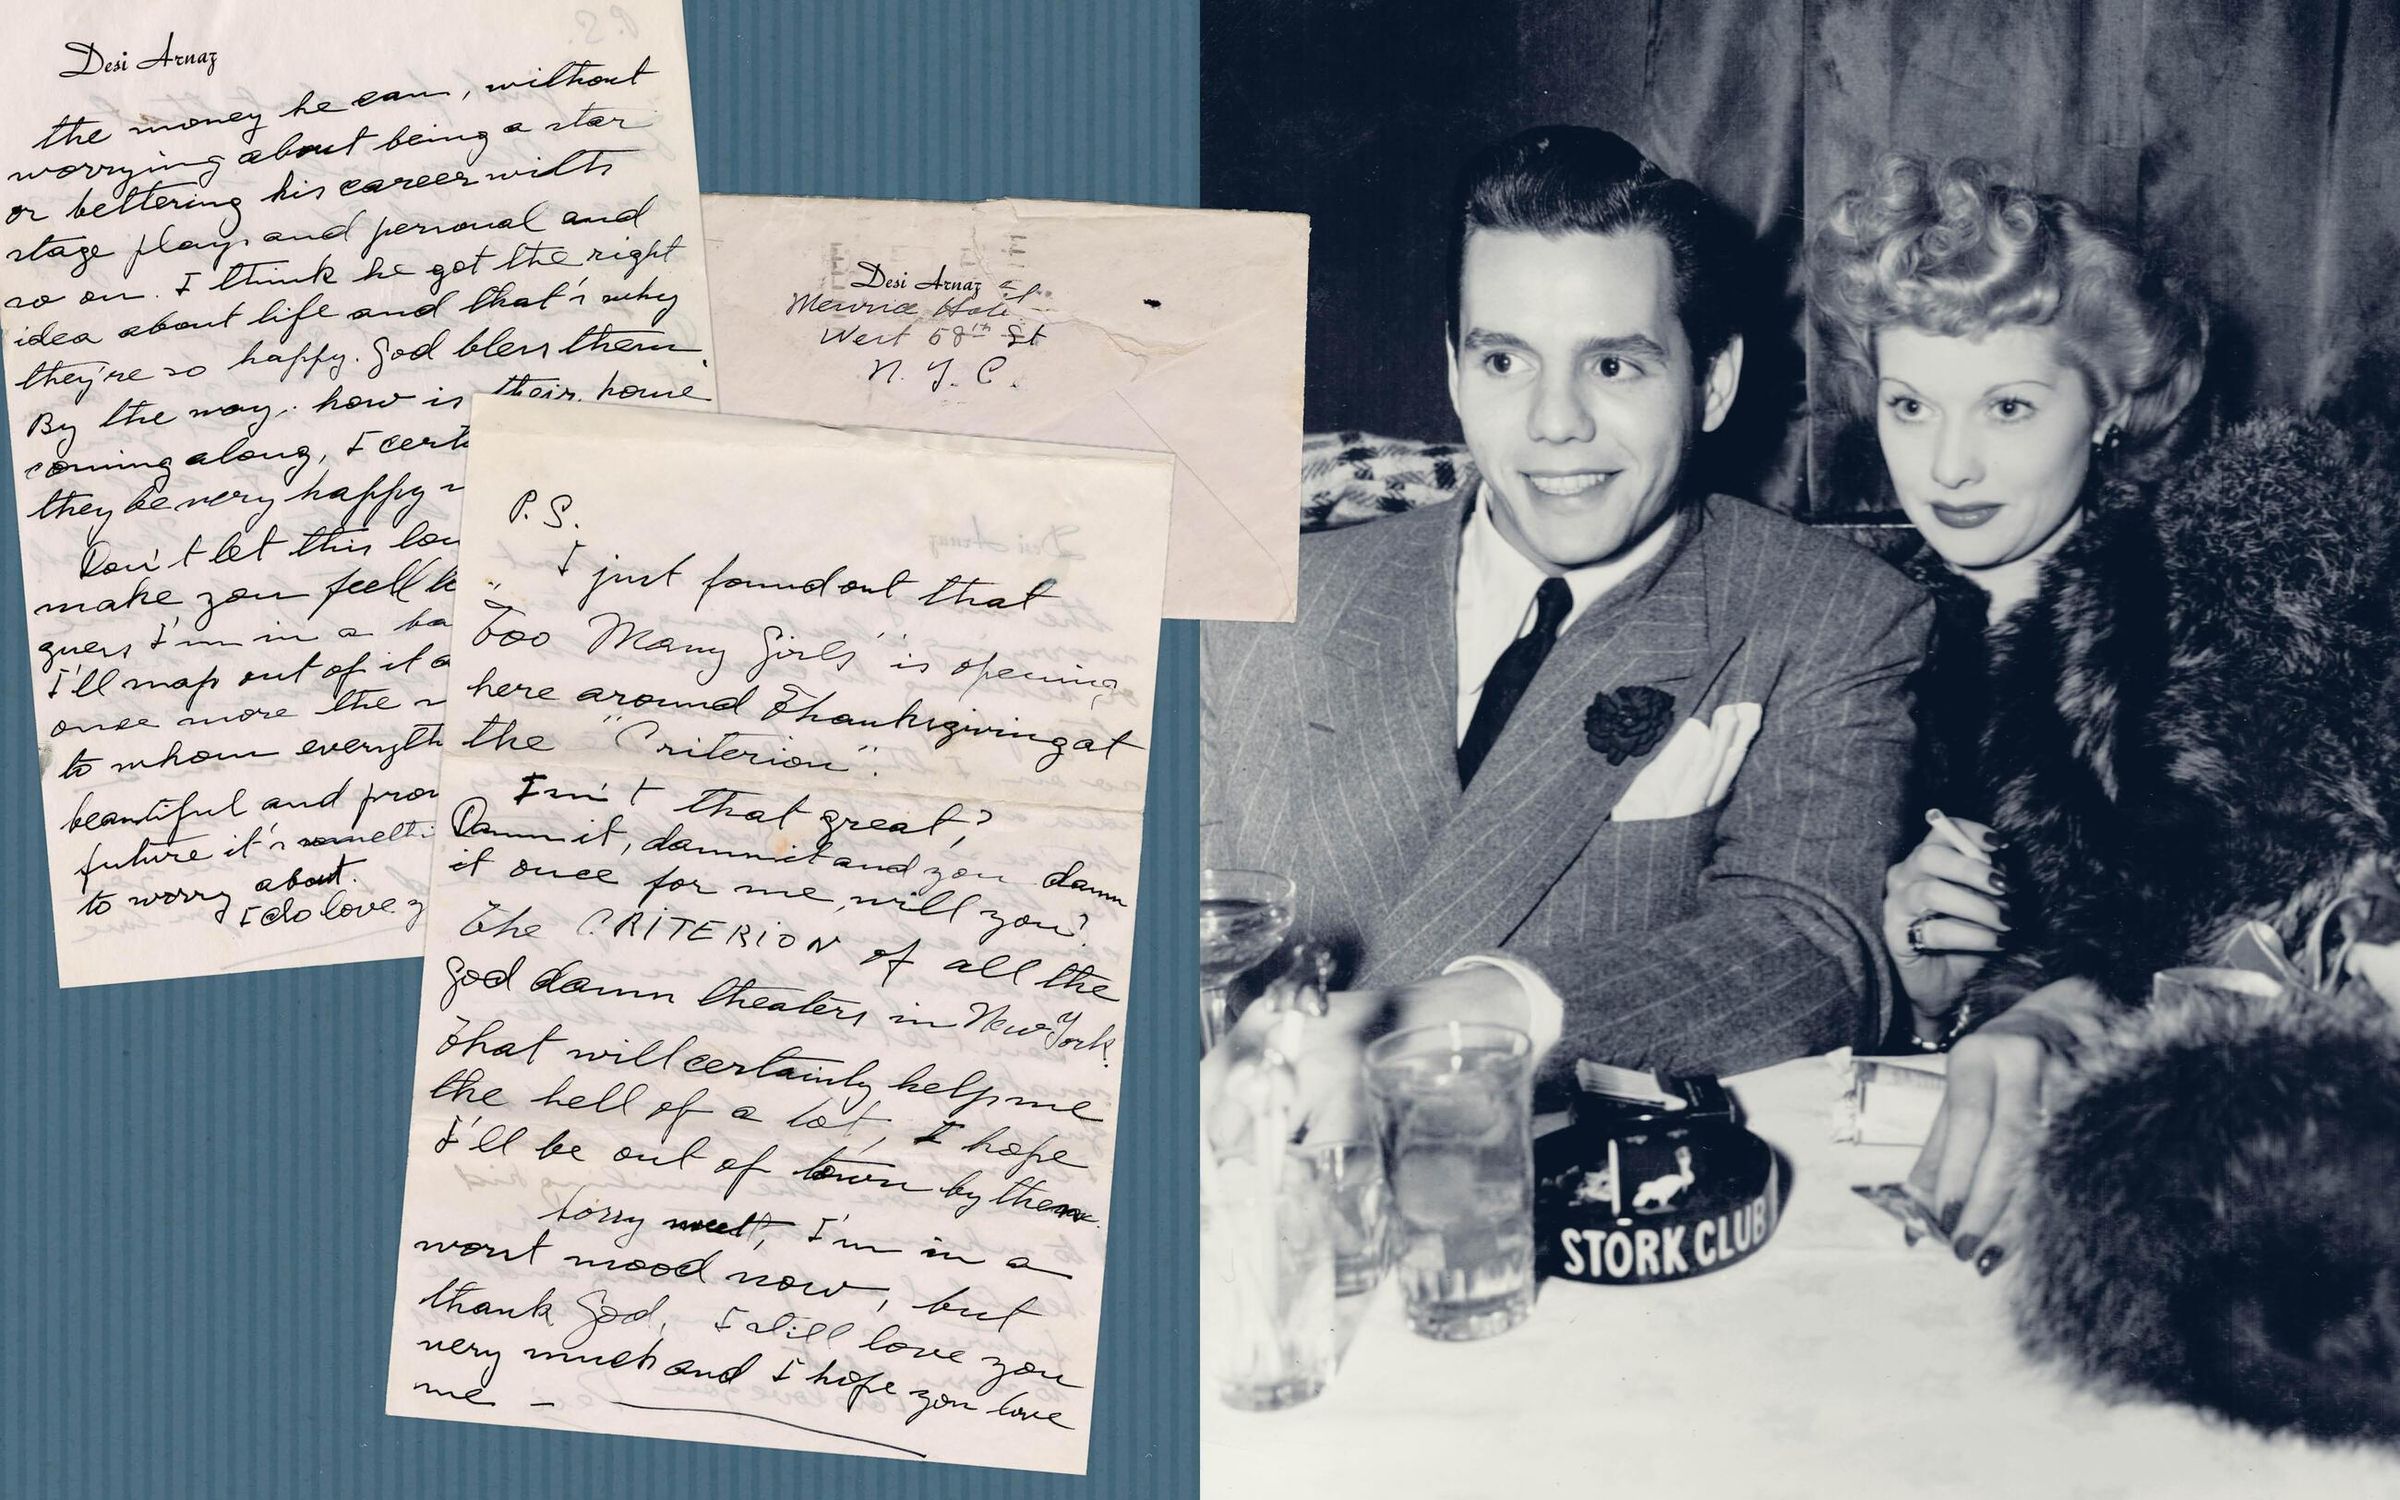 Desi Arnaz
the money he can, without
worrying about being a star
or bettering his career with
stage plays and personal and
so on. I think he got the right
idea about life and that's why
they're so happy. God bless them.
By the way, how is their home
coming along, I cert
they be very happy
Don't let this
make you feell
guess I'm in a ba
I'll snap out of it
once more the
to whom everyth
beautiful and
future it's somethi
to worry about.
I do love y
Desi Arnaz
Meurice Hotel
West 58th St
N. Y. C.
P.S.
I just found out that
"Too Many Girls" is opening
here around Thanksgiving at
the "Criterion".
Isn't that great?
Damn it, damn it and you damn
it once for me, will you?
The CRITERION of all the
God damn theaters in New York.
That will certainly help me
the hell of a lot, I hope
I'll be out of town by then.
Sorry sweet, I'm in a
worst mood now, but
thank God, I still love you
very much and I hope you love
me –
STORK CLUB